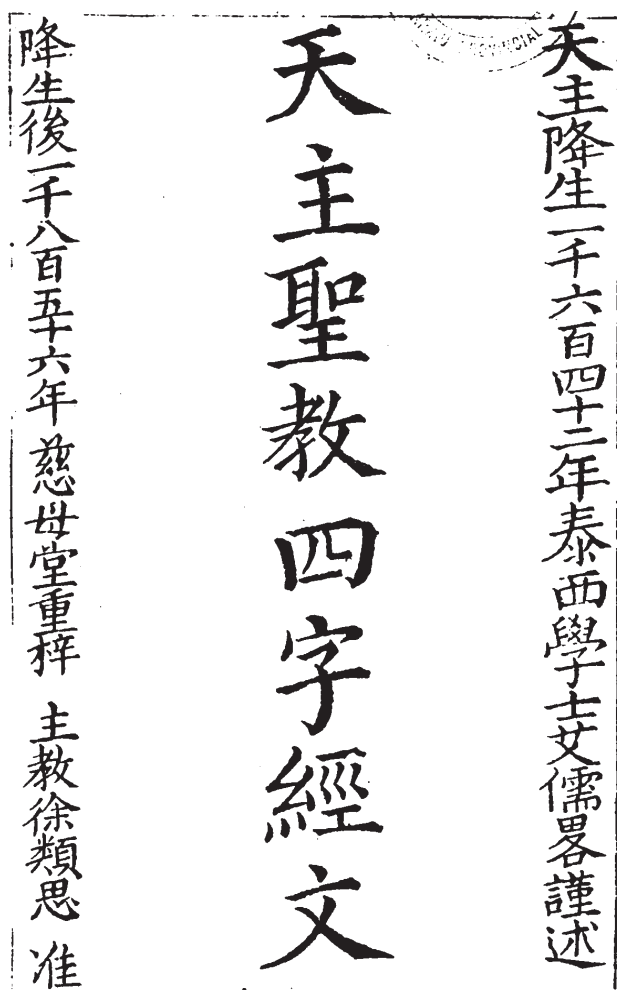 天主降生一千六百四十二年泰西學士艾儒畧謹述
天主聖教四字經文
降生後一千八百五十六年 慈母堂重梓 主教徐類思 准